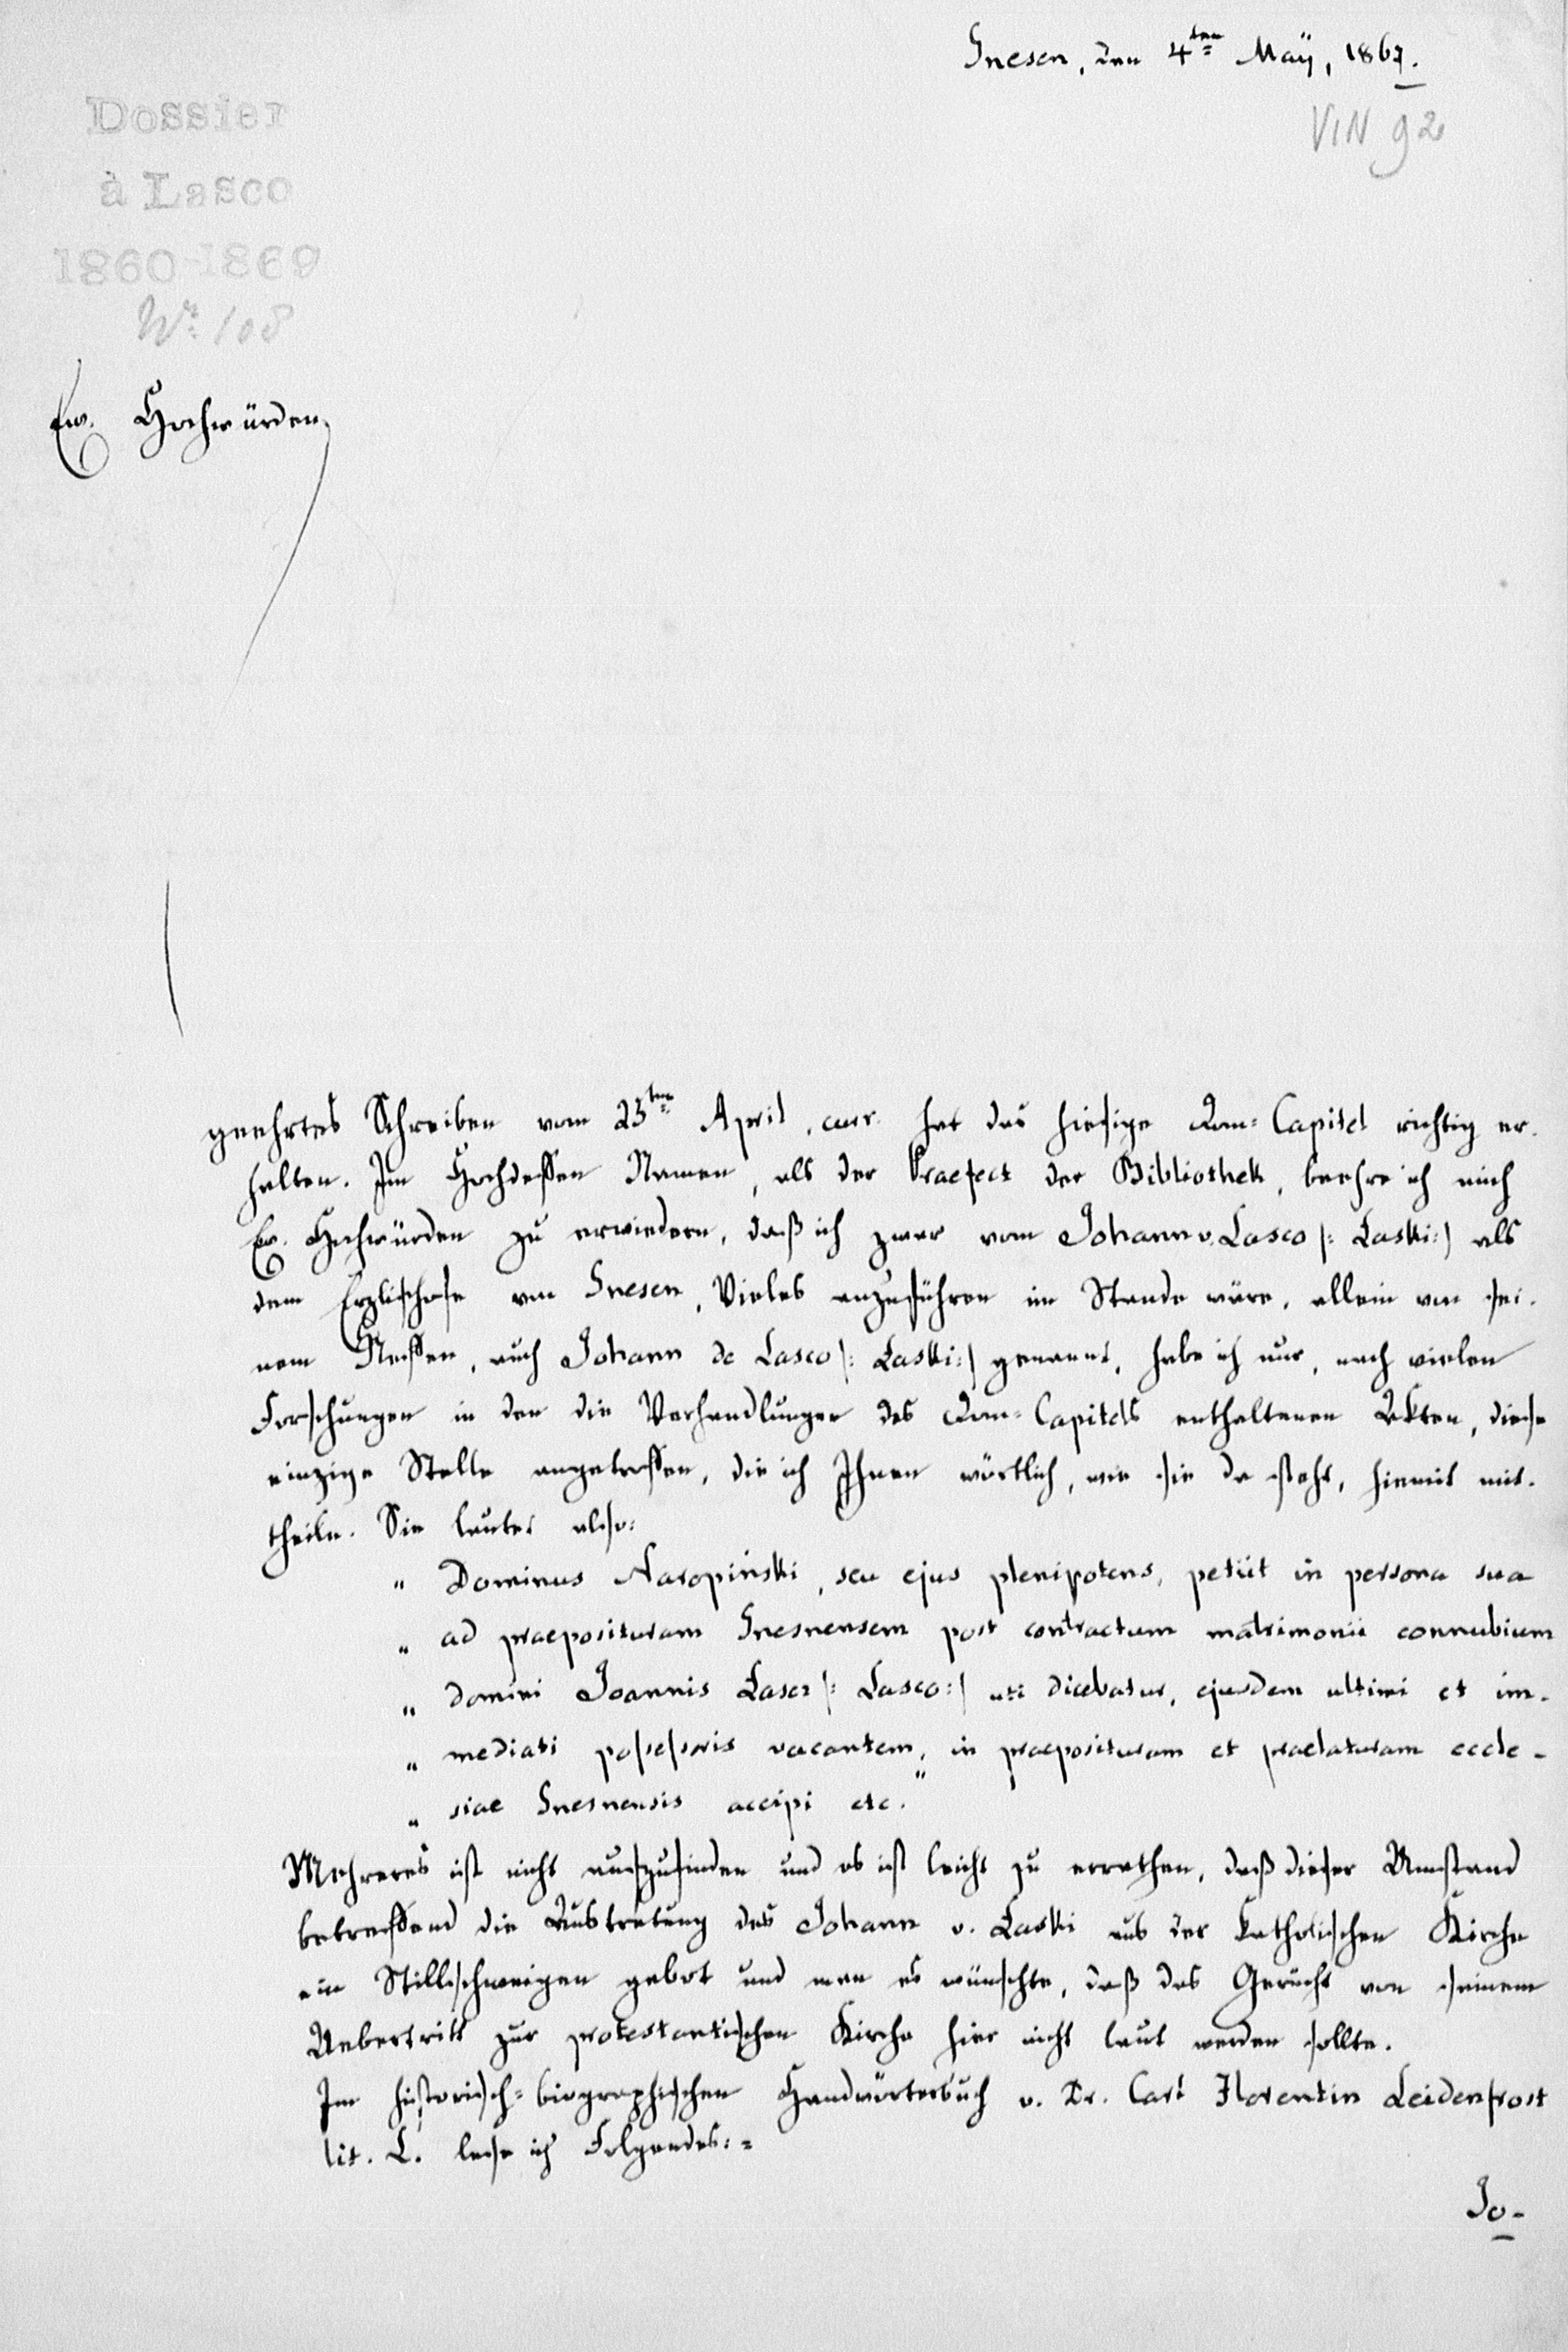 Gnesen, den 4ten Maÿ, 1867.
VIN 92
Dossier
à Lasco
1860-1869
No. 108
Ew. Hochwürden,
geehrtes Schreiben vom 23ten April, curr. hat das hiesige Dom-Capitel richtig er-
halten. Im Hochdessen Namen, als der Praefect der Bibliothek, beehre ich mich
Ew. Hochwürden zu erwiedern, daß ich zwar vom Johann v. Lasco |: Laski :| als
dem Erzbischofe von Gnesen, Vieles anzuführen im Stande wäre, allein von sei-
nem Neffen, auch Johann de Lasco |: Laski :| genannt, habe ich nur, nach vielen
Forschungen in den die Verhandlungen des Dom-Capitels enthaltenen Akten, diese
einzige Stelle angetroffen, die ich Ihnen wörtlich, wie sie da steht, hiemit mit-
theile. Sie lautet also:
„ Dominus Naropiński, seu ejus plenipotens, petiit in persona sua
„ ad praeposituram Gnesnensem post contractum matrimonii connubium
„ domini Joannis Lasci |: Lasco :| uti dicebatur, ejusdem ultimi et im-
„ mediati possessoris vacantem, in praeposituram et praelaturam eccle-
„ siae Gnesnensis accipi etc."
Mehreres ist nicht aufzufinden und es ist leicht zu errathen, daß dieser Umstand
betreffend die Austretung des Johann v. Laski aus der katholischen Kirche
ein Stillschweigen gebot und man es wünschte, daß das Gerücht von seinem
Uebertritt zur protestantischen Kirche hier nicht laut werden sollte.
Im historisch-biographischen Handwörterbuch v. Dr. Carl Florentin Leidenfrost
lit. L. lese ich Folgendes:-
Jo-